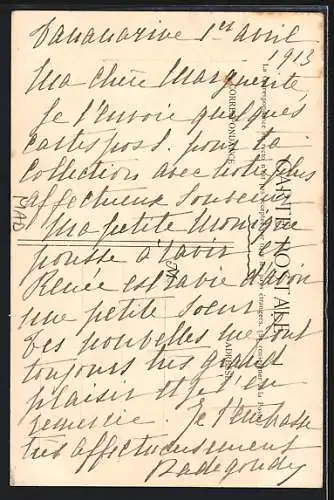 Tananarive 1er avril
1913
Ma chère Marguerite,
Je t'envoie quelques
cartes post. pour ta
collection avec notre plus
affectueux souvenir
Ma petite Monique
pousse à ravir et
Renée est ravie d'avoir
une petite soeur
Tes nouvelles me font
toujours très grand
plaisir et je t'en
remercie. Je t'embrasse
très affectueusement
Radegonde
CARTE POSTALE
CORRESPONDANCE
ADRESSE
MAD